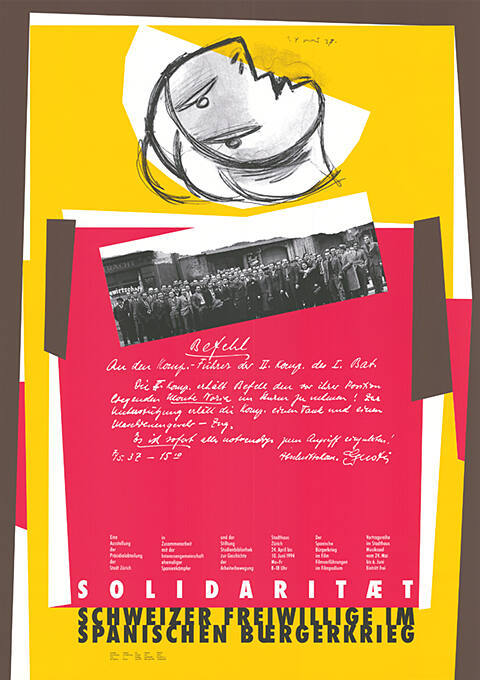 24 mai 37.
Befehl
An den Komp.-Führer der II. Komp. des I. Bat.
Die II. Komp. erhält Befehl den vor ihrer Position
liegenden Monte Toria im Sturm zu nehmen! Zur
Unterstützung erhält die Komp. einen Tank und einen
Maschinengewehr-Zug.
Es ist sofort alles notwendige zum Angriff
37 – 15
Eine
Ausstellung
der
Präsidialabteilung
der
Stadt Zürich
in
Zusammenarbeit
mit der
Interessengemeinschaft
ehemaliger
Spanienkämpfer
und der
Stiftung
Studienbibliothek
zur Geschichte
der
Arbeiterbewegung
Stadthaus
Zürich
24. April bis
10. Juni 1994
Mo–Fr
8–18 Uhr
Der
Spanische
Bürgerkrieg
im Film
Filmvorführungen
im Filmpodium
Vortragsreihe
im Stadthaus
Musiksaal
vom 24. Mai
bis 6. Juni
Eintritt frei
SOLIDARITÆT
SCHWEIZER FREIWILLIGE IM
SPANISCHEN BŒRGERKRIEG